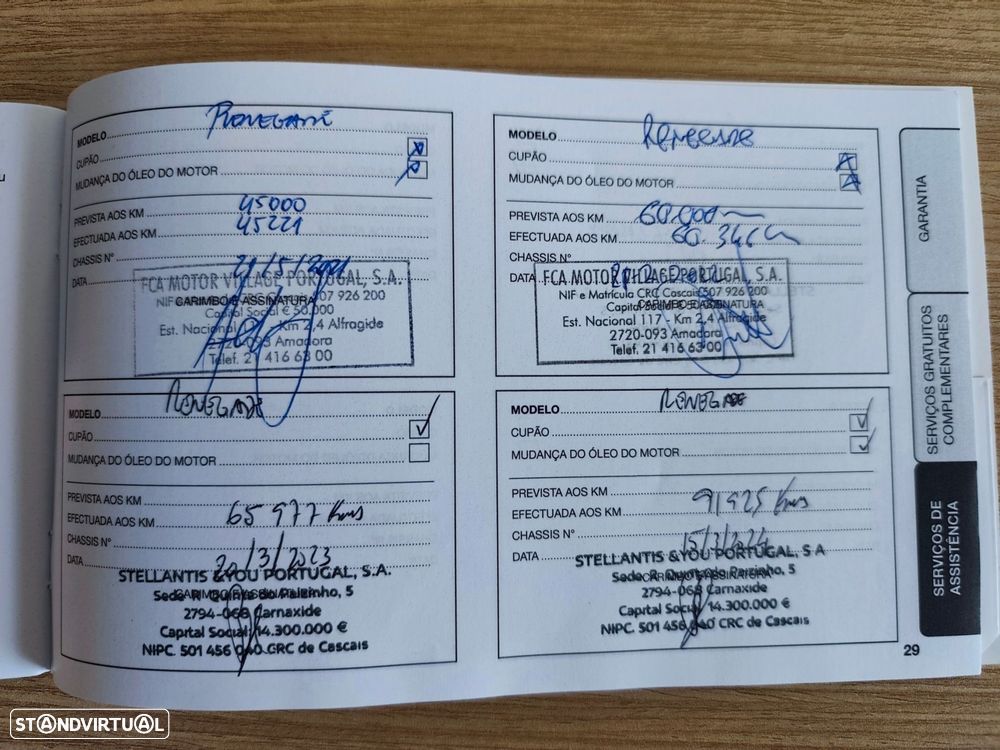 MODELO RENEGADE
CUPÃO
MUDANÇA DO ÓLEO DO MOTOR
PREVISTA AOS KM 45000
EFECTUADA AOS KM 45221
CHASSIS Nº
DATA 21/5/2021
FCA MOTOR VILLAGE PORTUGAL, S.A.
NIF 507 926 200
CARIMBO E ASSINATURA
Capital Social € 50.000
Est. Nacional Km 2,4 Alfragide
2720-093 Amadora
Telef. 21 416 63 00
MODELO RENEGADE
CUPÃO
MUDANÇA DO ÓLEO DO MOTOR
PREVISTA AOS KM 60.000
EFECTUADA AOS KM 60.346
CHASSIS Nº
DATA
FCA MOTOR VILLAGE PORTUGAL, S.A.
NIF e Matrícula CRC Cascais 507 926 200
CARIMBO E ASSINATURA
Capital Social
Est. Nacional 117 - Km 2,4 Alfragide
2720-093 Amadora
Telef. 21 416 63 00
MODELO RENEGADE
CUPÃO
MUDANÇA DO ÓLEO DO MOTOR
PREVISTA AOS KM
EFECTUADA AOS KM 65977 Kms
CHASSIS Nº
DATA 20/3/2023
STELLANTIS &YOU PORTUGAL, S.A.
Sede R Quinta do Paizinho, 5
CARIMBO E ASSINATURA
2794-068 Carnaxide
Capital Social 14.300.000 €
NIPC. 501 456 040 CRC de Cascais
MODELO RENEGADE
CUPÃO
MUDANÇA DO ÓLEO DO MOTOR
PREVISTA AOS KM
EFECTUADA AOS KM 91925 Kms
CHASSIS Nº
DATA 15/3/2024
STELLANTIS &YOU PORTUGAL, S A
Sede R Quinta do Paizinho, 5
CARIMBO E ASSINATURA
2794-068 Carnaxide
Capital Social 14.300.000 €
NIPC. 501 456 040 CRC de Cascais
GARANTIA
SERVIÇOS GRATUITOS
COMPLEMENTARES
SERVIÇOS DE
ASSISTÊNCIA
29
STANDVIRTUAL